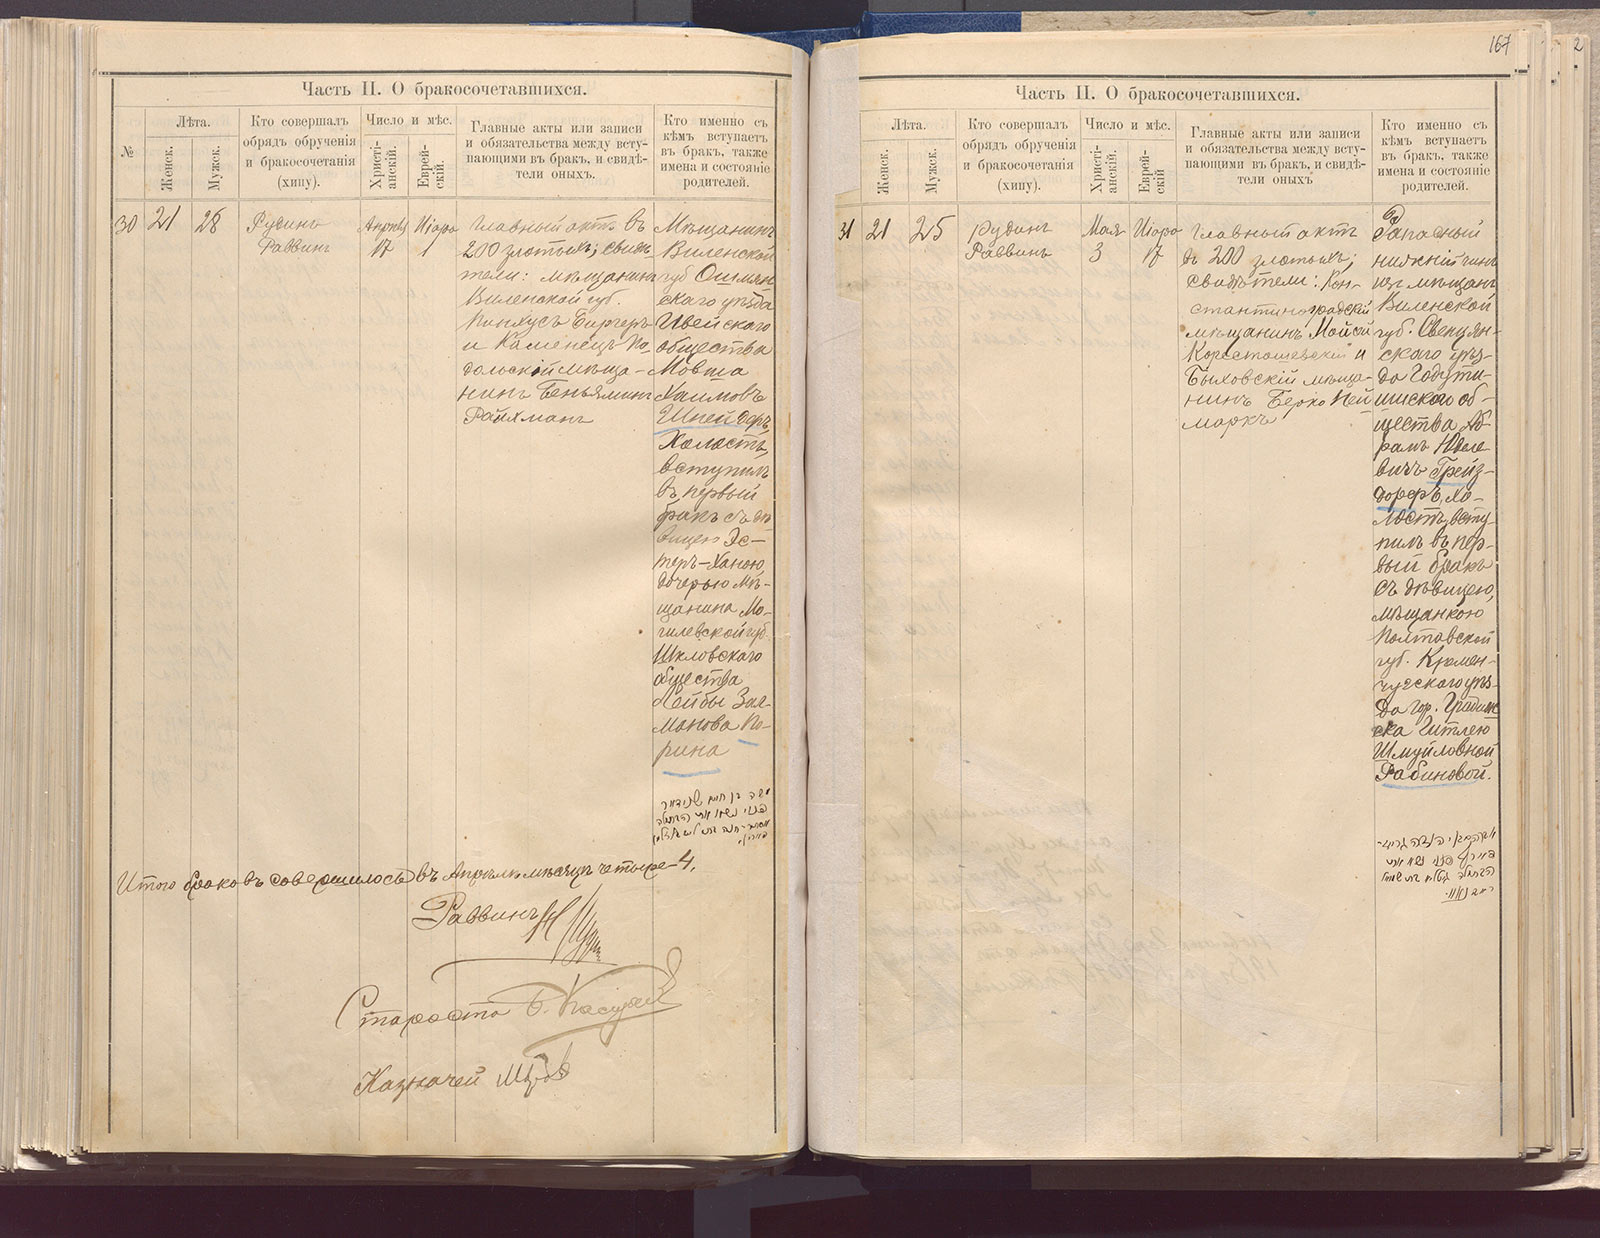 Часть II. О бракосочетавшихся.
№
Лѣта.
Женск.
Мужск.
Кто совершалъ
обрядъ обрученія
и бракосочетанія
(хипу).
Число и мѣс.
Христі-
анскій.
Еврей-
скій.
Главные акты или записи
и обязательства между всту-
пающими въ бракъ, и свидѣ-
тели оныхъ.
Кто именно съ
кѣмъ вступаетъ
въ бракъ, также
имена и состояніе
родителей.
30
21
28
Рудинъ
Раввинъ
Апрѣля
17
Иіоро
1
Главный актъ въ
200 злотыхъ; свидѣ-
тели: мѣщанинъ
Виленской губ.
Пинхусъ Биргеръ
и Каменецъ-По-
дольскій мѣща-
нинъ Беньяминъ
Райхманъ
Мѣщанинъ
Виленской
губ Ошмян
скаго уѣзда
Ивейскаго
общества
Мовша
Хаимовъ
Шнейдеръ,
Холостъ,
вступилъ
въ первый
бракъ съ дѣ
вицею Эс-
теръ-Ханою
дочерью мѣ-
щанина Мо-
гилевской губ.
Шкловскаго
общества
Лейбы Зал-
манова По-
рина
משה בן חיים שניידער
פנוי נשא את הבתולה
אסתר-חנה בת
פארין
Итого браковъ совершилось въ Апрѣлѣ мѣсяцѣ четыре-4.
Раввинъ
Староста Б.
Казначей
167
2
Часть II. О бракосочетавшихся.
Лѣта.
Женск.
Мужск.
Кто совершалъ
обрядъ обрученія
и бракосочетанія
(хипу).
Число и мѣс.
Христі-
анскій.
Еврей-
скій
Главные акты или записи
и обязательства между всту-
пающими въ бракъ, и свидѣ-
тели оныхъ
Кто именно съ
кѣмъ вступаетъ
въ бракъ, также
имена и состояніе
родителей.
31
21
25
Рудинъ
Раввинъ
Мая
3
Иіоро
17
Главный актъ
въ 200 злотыхъ;
свидѣтели: Кон-
стантиноградскій
мѣщанинъ Мойсей
Корсташевскій и
Быховскій мѣща-
нинъ Берко Ней
маркъ
Запасный
нижній чинъ
изъ мѣщанъ
Виленской
губ. Свенцян-
скаго уѣз-
да Годути-
шскаго об-
щества Аб-
рамъ
вичъ Грейз-
дорфъ, хо-
лостъ, всту-
пилъ въ пер-
вый бракъ
съ дѣвицею,
мѣщанкою
Полтавской
губ. Кремен-
чугскаго уѣз-
да гор. Градиж
ска Гитлею
Шмуйловной
Рабиновой.
פנוי נשא את
הבתולה גיטליה בת שמואל